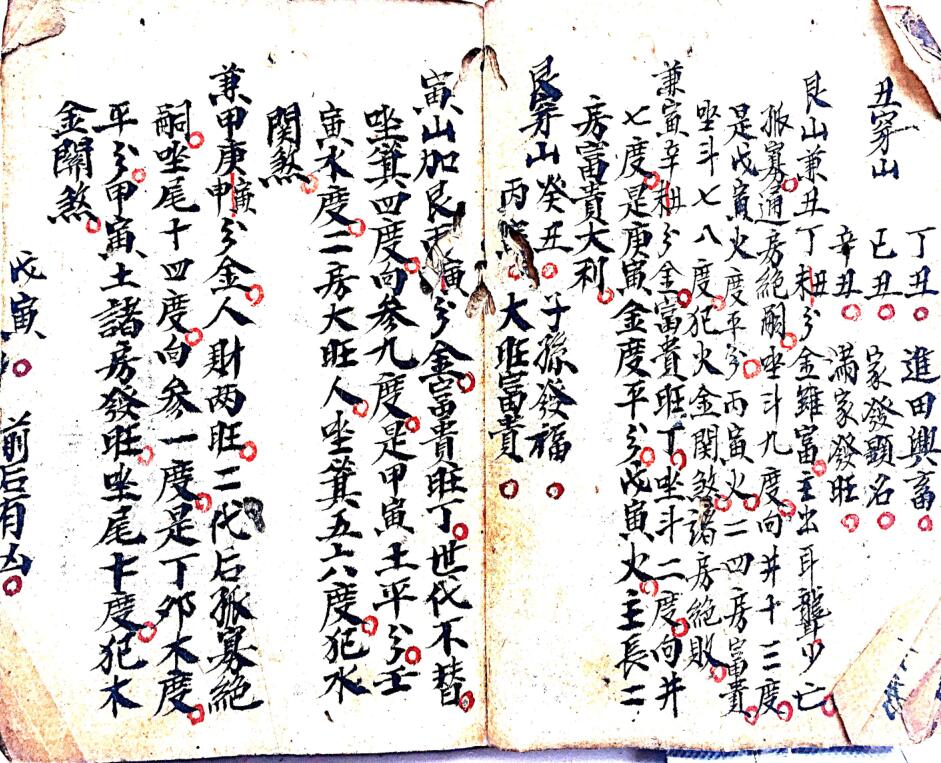 丑穿山
丁丑 進田興畜
己丑 家發顯名
辛丑 滿家發旺
艮山兼丑丁未分金雖富主出耳聾少亡
孤寡通房絕嗣坐斗九度向井十三度
是戊寅火度平分丙寅火二四房富貴
坐斗七八度犯火金関煞諸房絕敗
兼寅辛丑分金富貴旺丁坐斗二度向井
七度是庚寅金度平分戊寅火主長二
房富貴大利
艮穿山 癸丑 子孫發福
丙 大旺富貴
寅山加艮丙寅分金富貴旺丁世代不替
坐箕四度向參九度是甲寅土平分壬
寅水度二房大旺人坐箕五六度犯水
関煞
兼甲庚寅申分金人財两旺二代后孤寡絕
嗣坐尾十四度向參一度是丁卯木度
平分甲寅土諸房發旺坐尾七度犯木
金關煞
戊寅 前后有凶